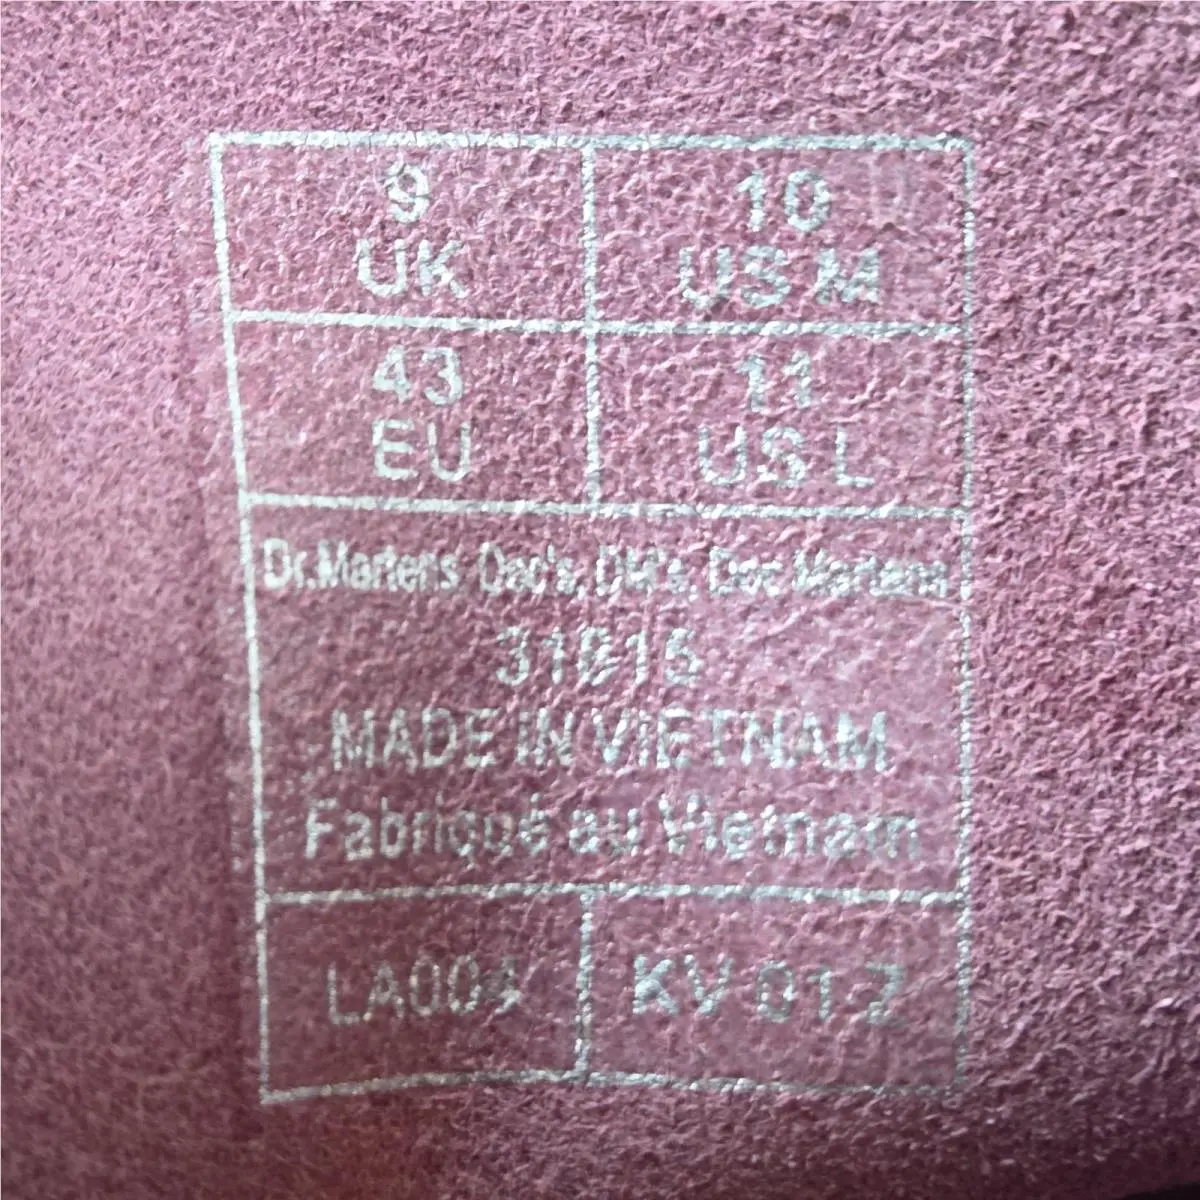 9
UK
10
US M
43
EU
11
US L
Dr.Martens, Doc's, DM's, Doc Martens
31815
MADE IN VIETNAM
Fabriqué au Vietnam
LA004
KV 01 Z